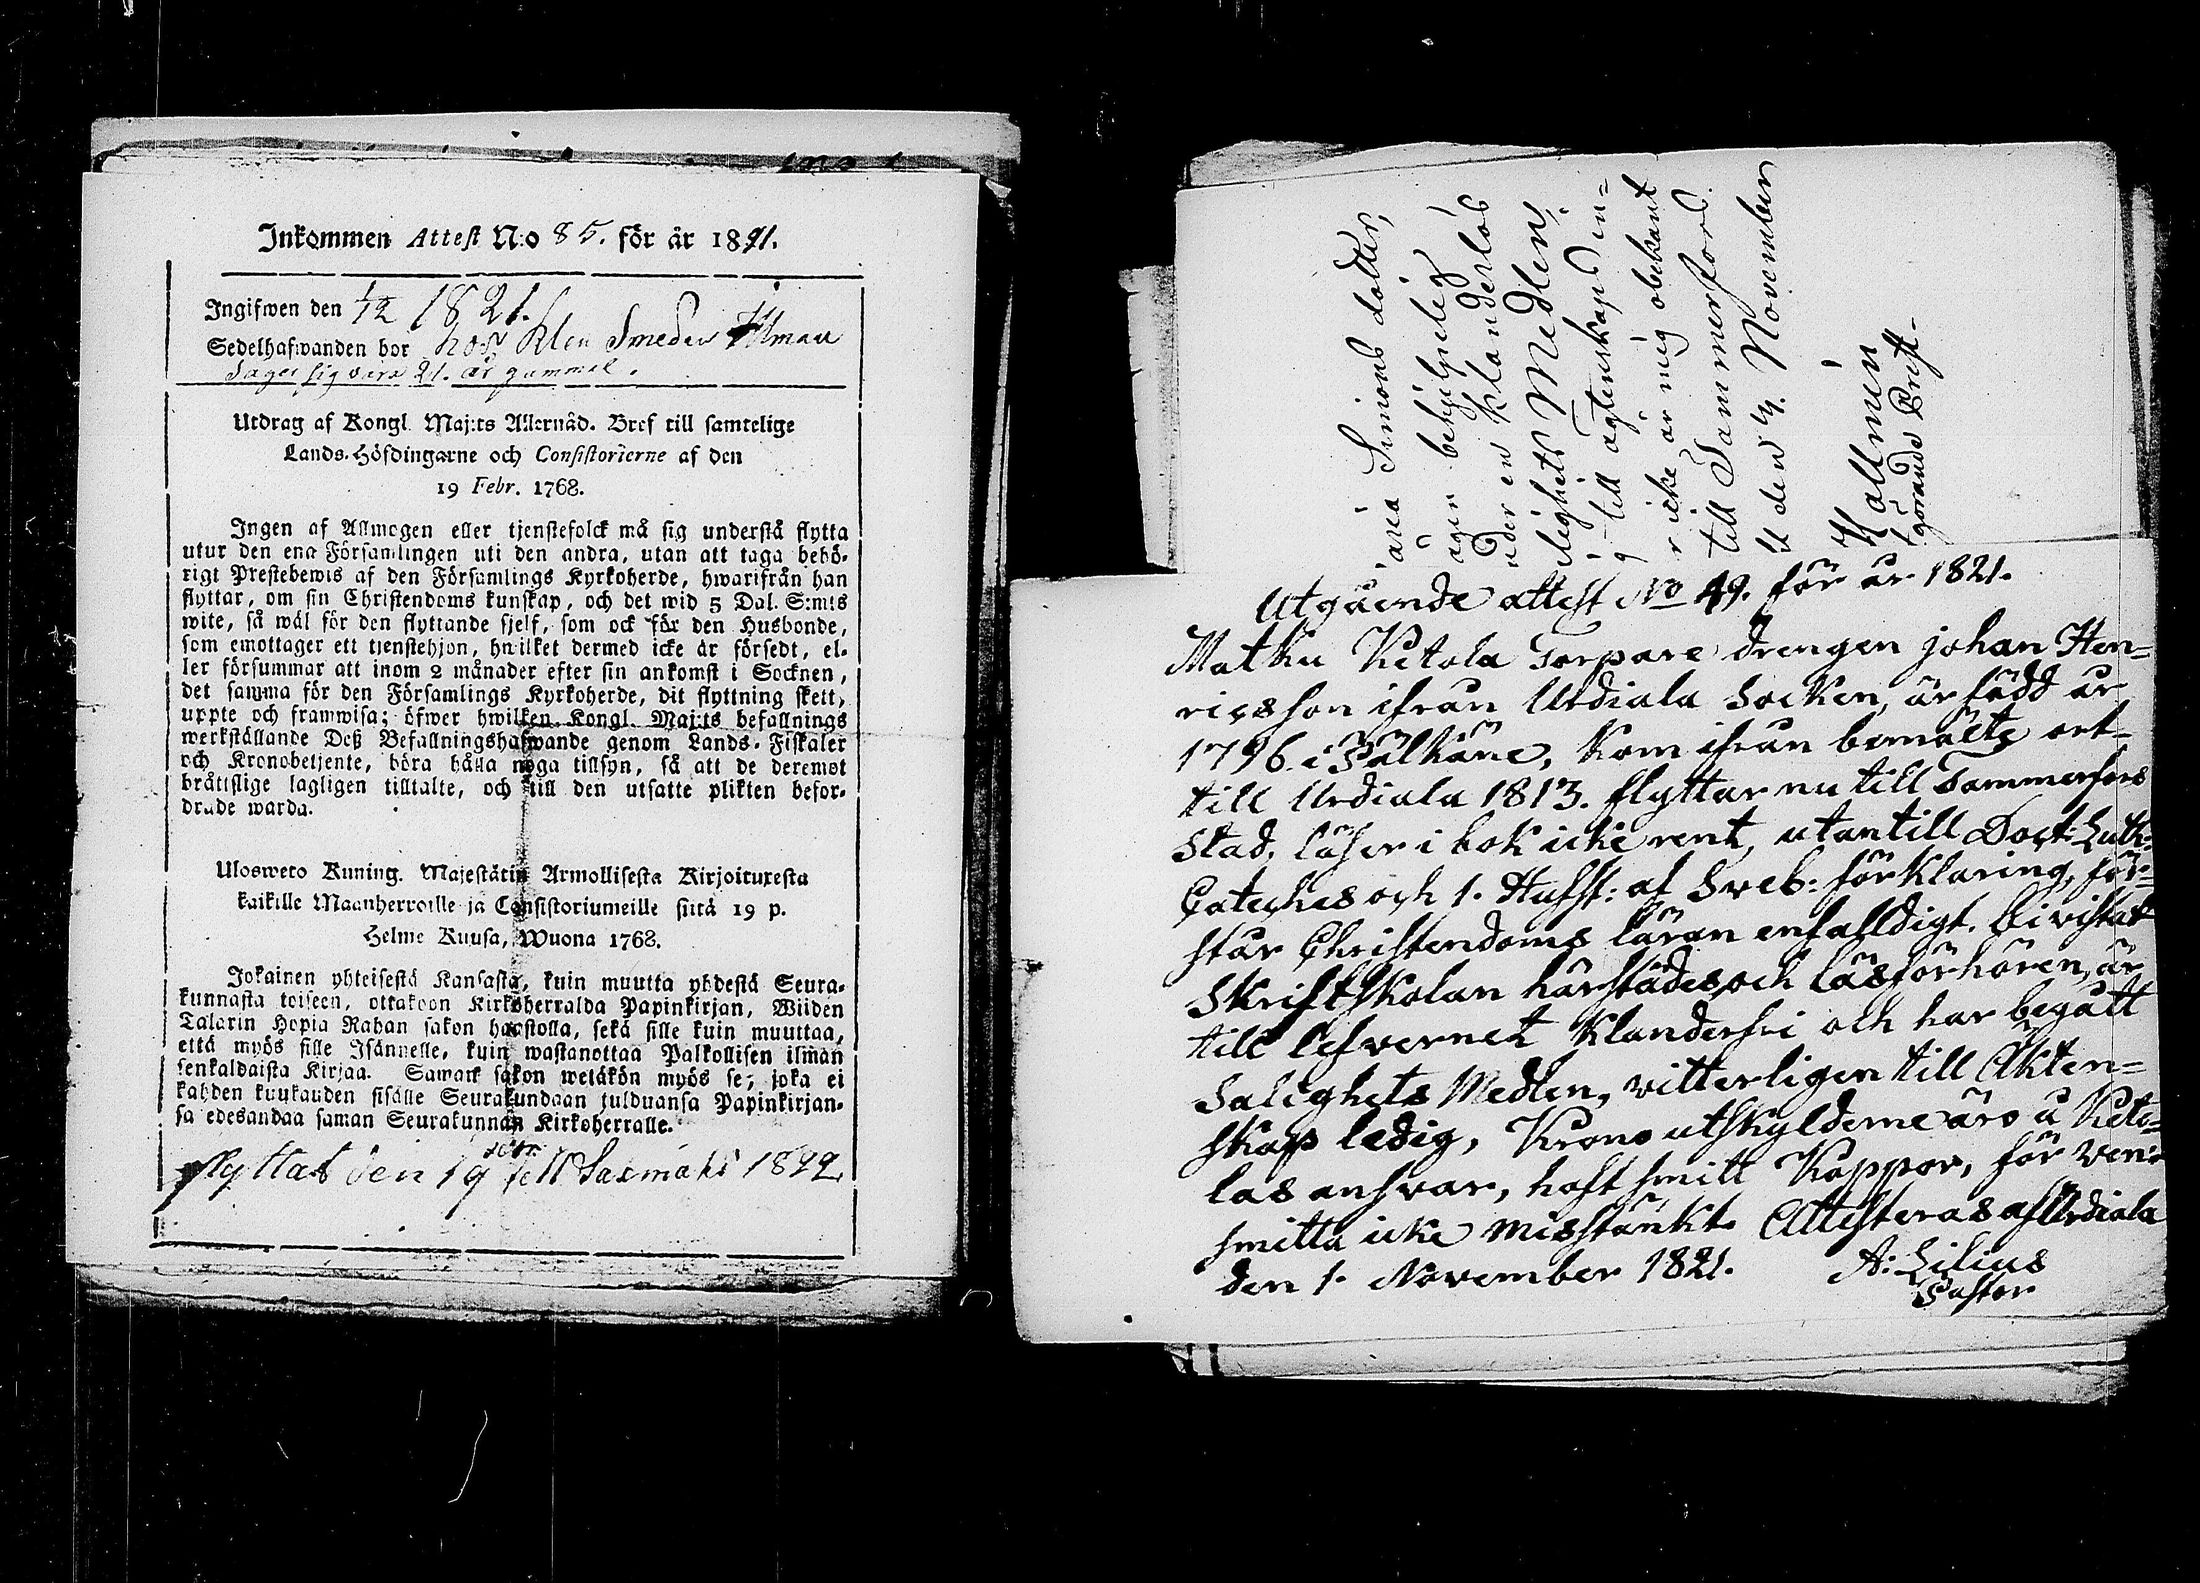 Inkommen Attest N:o 85. för år 1821.
Ingifwen den 1/12 1821.
Sedelhafwanden bor hos Klen Smeden Ilman
Säger sig vara 21. år gammal.
Utdrag af Kongl. Maj:ts Allernåd. Bref till samtelige
Lands-Höfdingarne och Consistorierne af den
19 Febr. 1768.
Ingen af Allmogen eller tjenstefolck må sig understå flytta
utur den ena Församlingen uti den andra, utan att taga behö-
rigt Prestebewis af den Församlings Kyrkoherde, hwarifrån han
flyttar, om sin Christendoms kunskap, och det wid 5 Dal. S:mts
wite, så wäl för den flyttande sjelf, som ock för den Husbonde,
som emottager ett tjenstehjon, hwilket dermed icke är försedt, el-
ler försummar att inom 2 månader efter sin ankomst i Socknen,
det samma för den Församlings Kyrkoherde, dit flyttning skett,
uppte och framwisa; öfwer hwilken Kongl. Maj:ts befallnings
werkställande Deß Befallningshafwande genom Lands-Fiskaler
och Kronobetjente, böra hålla noga tillsyn, så att de deremot
bråttslige lagligen tilltalte, och till den utsatte plikten befor-
drade warda.
Ulosweto Kuning. Majestätin Armollisesta Kirjoituxesta
kaikille Maanherroille ja Consistoriumeille siitä 19 p.
Helme Kuusa, Wuona 1768.
Jokainen yhteisestä Kansasta, kuin muutta yhdestä Seura-
kunnasta toiseen, ottakoon Kirkoherralda Papinkirjan, Wiiden
Talarin Hopia Rahan sakon haastolla, sekä sille kuin muuttaa,
että myös sille Isännelle, kuin wastanottaa Palkollisen ilman
senkaldaista Kirjaa. Samat sakon wetäkön myös se, joka ei
kahden kuukauden sisälle Seurakundaan julduansa Papinkirjan-
sa edesandaa saman Seurakunnan Kirkoherralle.
flyttat den 19 till Saxmäki 1822.
aria Simons dotter,
agen behjelpelig
uder en klanderlös
lighets Medlen,
g till ägtenskaps in=
r icke är mig obekant
till Tammerfors.
lt den 4. November
Hallmén
görande Prest.
Utgående attest No 49. för år 1821.
Matku Ketola Torpare drengen johan Hen=
ricsson ifrån Urdiala Socken, är född år
1796 i Pälkäne, kom ifrån bemälte ort
till Urdiala 1813. flyttar nu till Tammerfors
Stad. läser i bok icke rent, utantill Doct: Luth:
Catechis och 1. Hufst: af Sveb: förklaring, för=
står Christendoms läran enfalldigt. Bivistat
Skriftskolan härstädes och läsförhören, är
till lefvernet klanderfri och har begått
Salighets Medlen, vitterligen till Äkten=
skap ledig, Krono utskylderne äro å Keto=
las ansvar, haft smitt Koppor, för ven:r
smitta icke misstänkt. Attesteras af Urdiala
den 1. November 1821. A: Lilius
Pastor